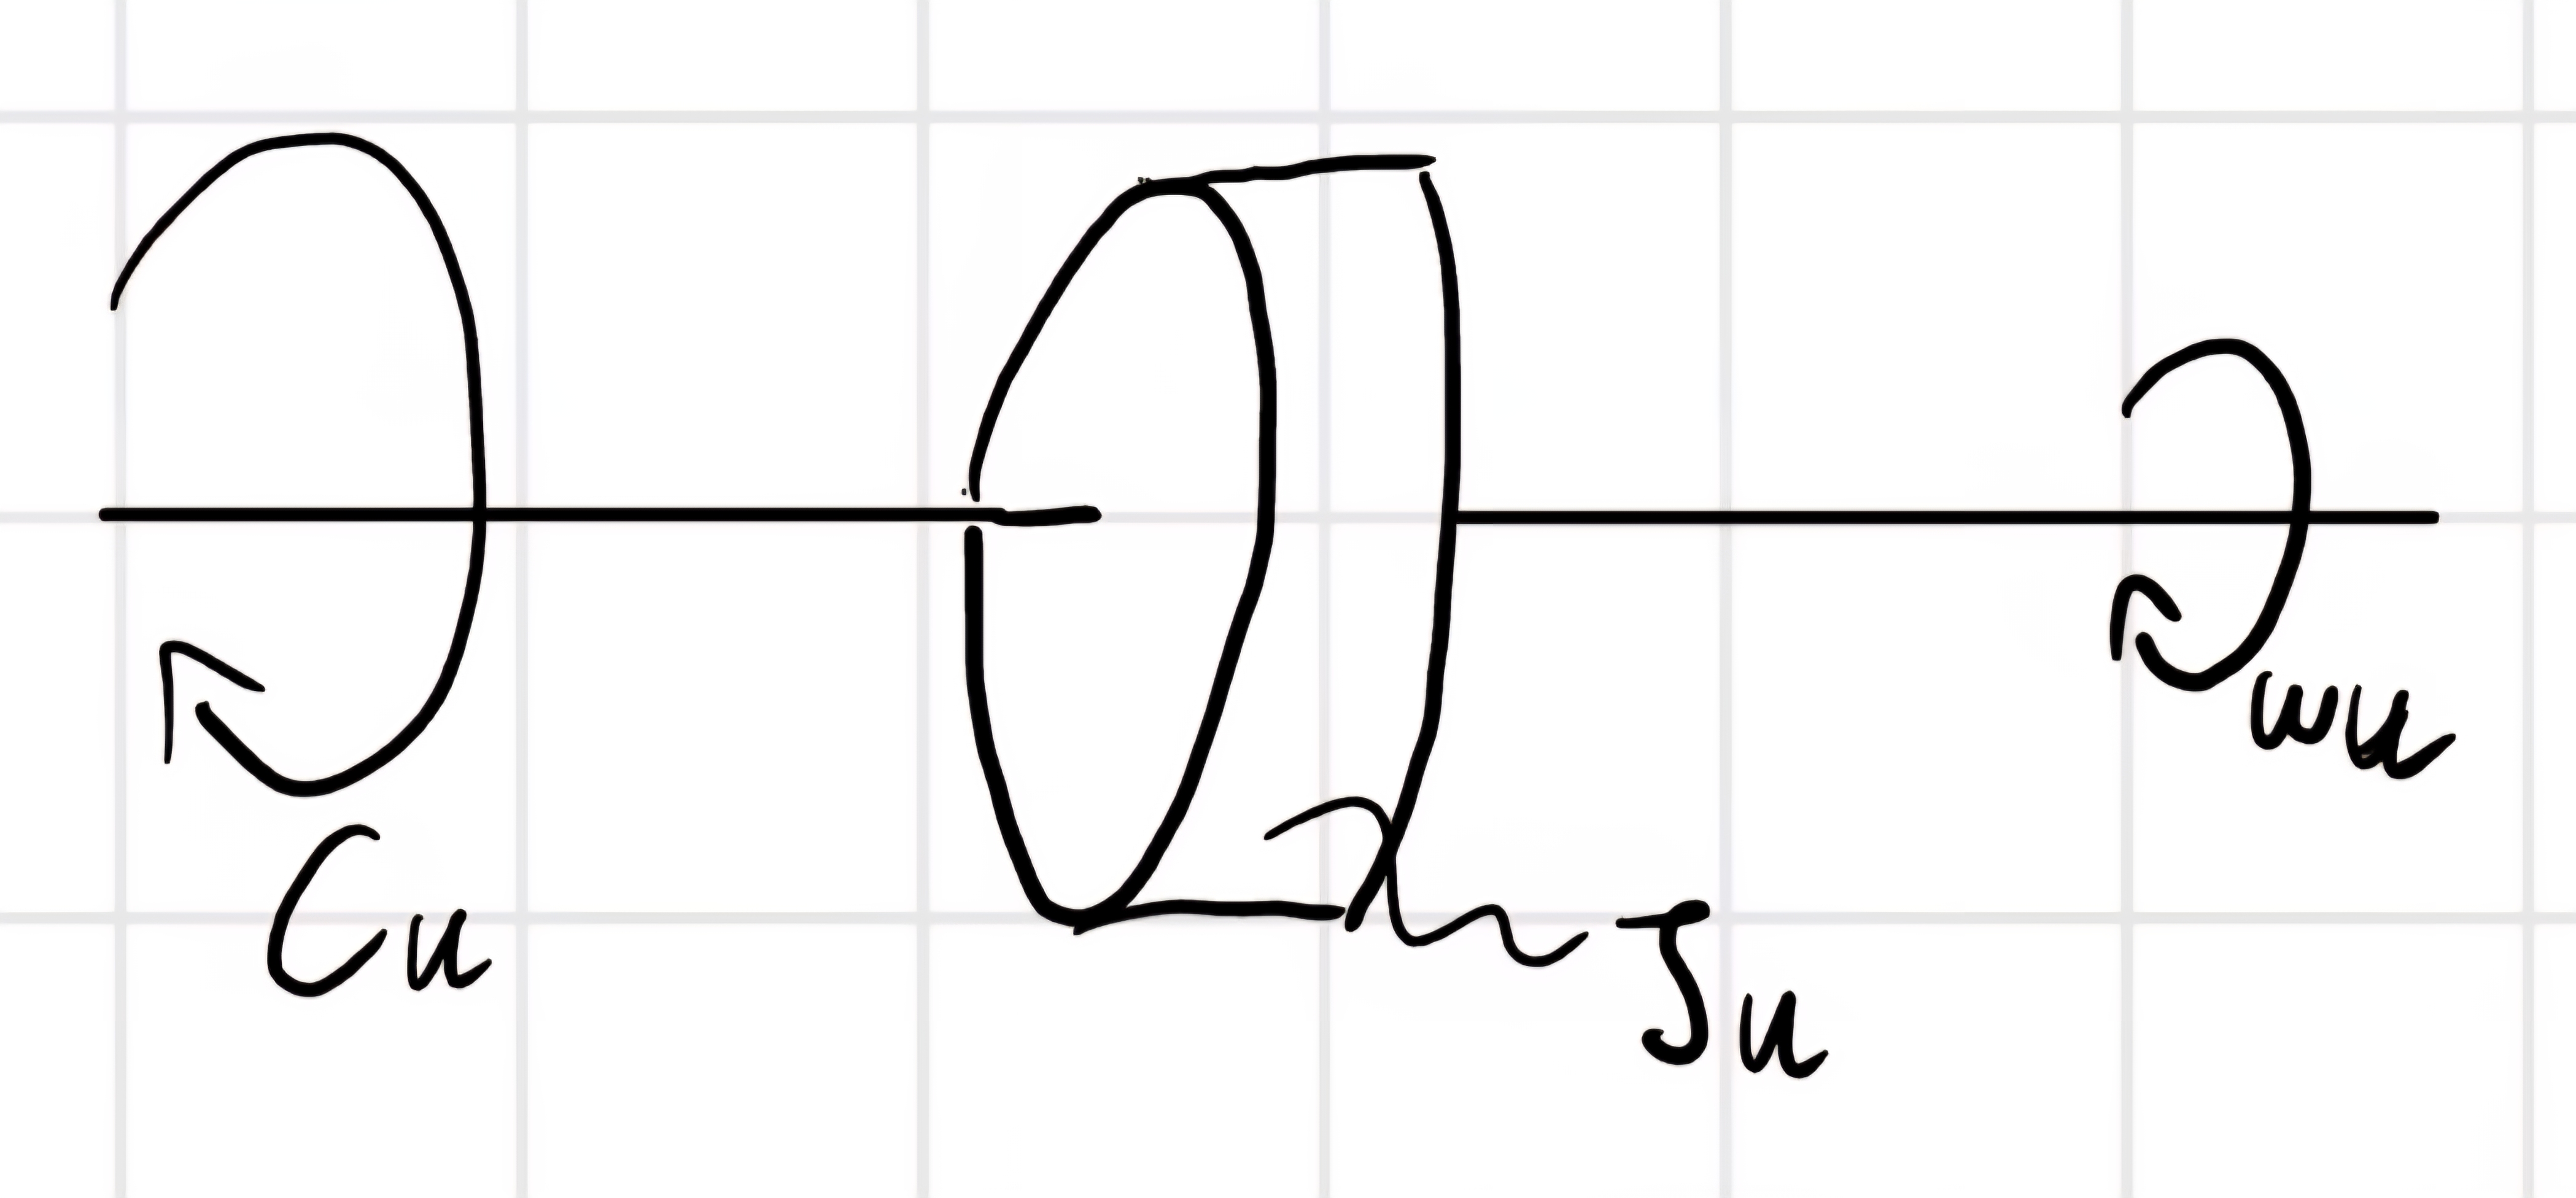 Cu
Ju
ωu